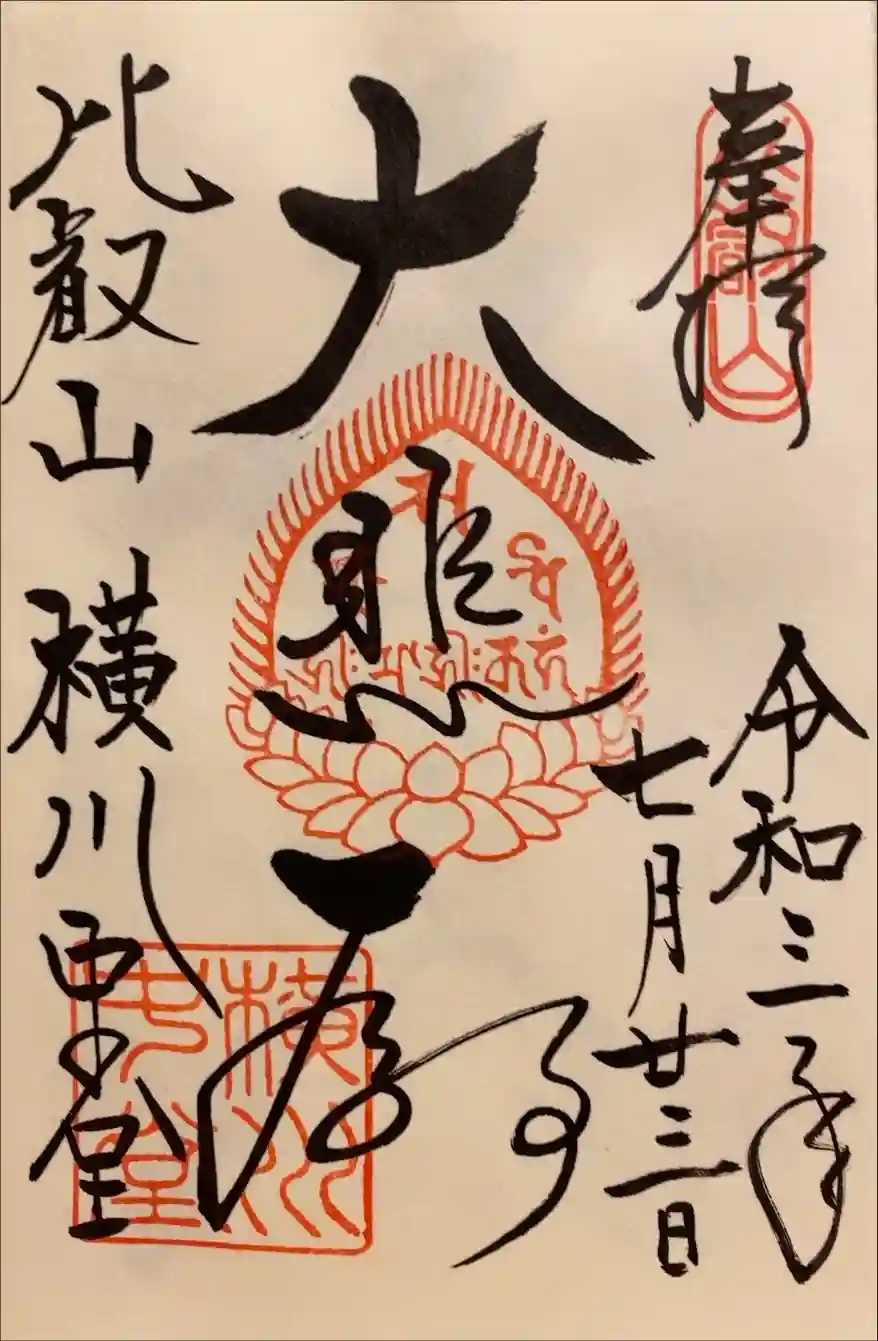 奉拝
令和三年
七月廿三日
大悲殿
比叡山 横川中堂
比叡山
横川
中堂